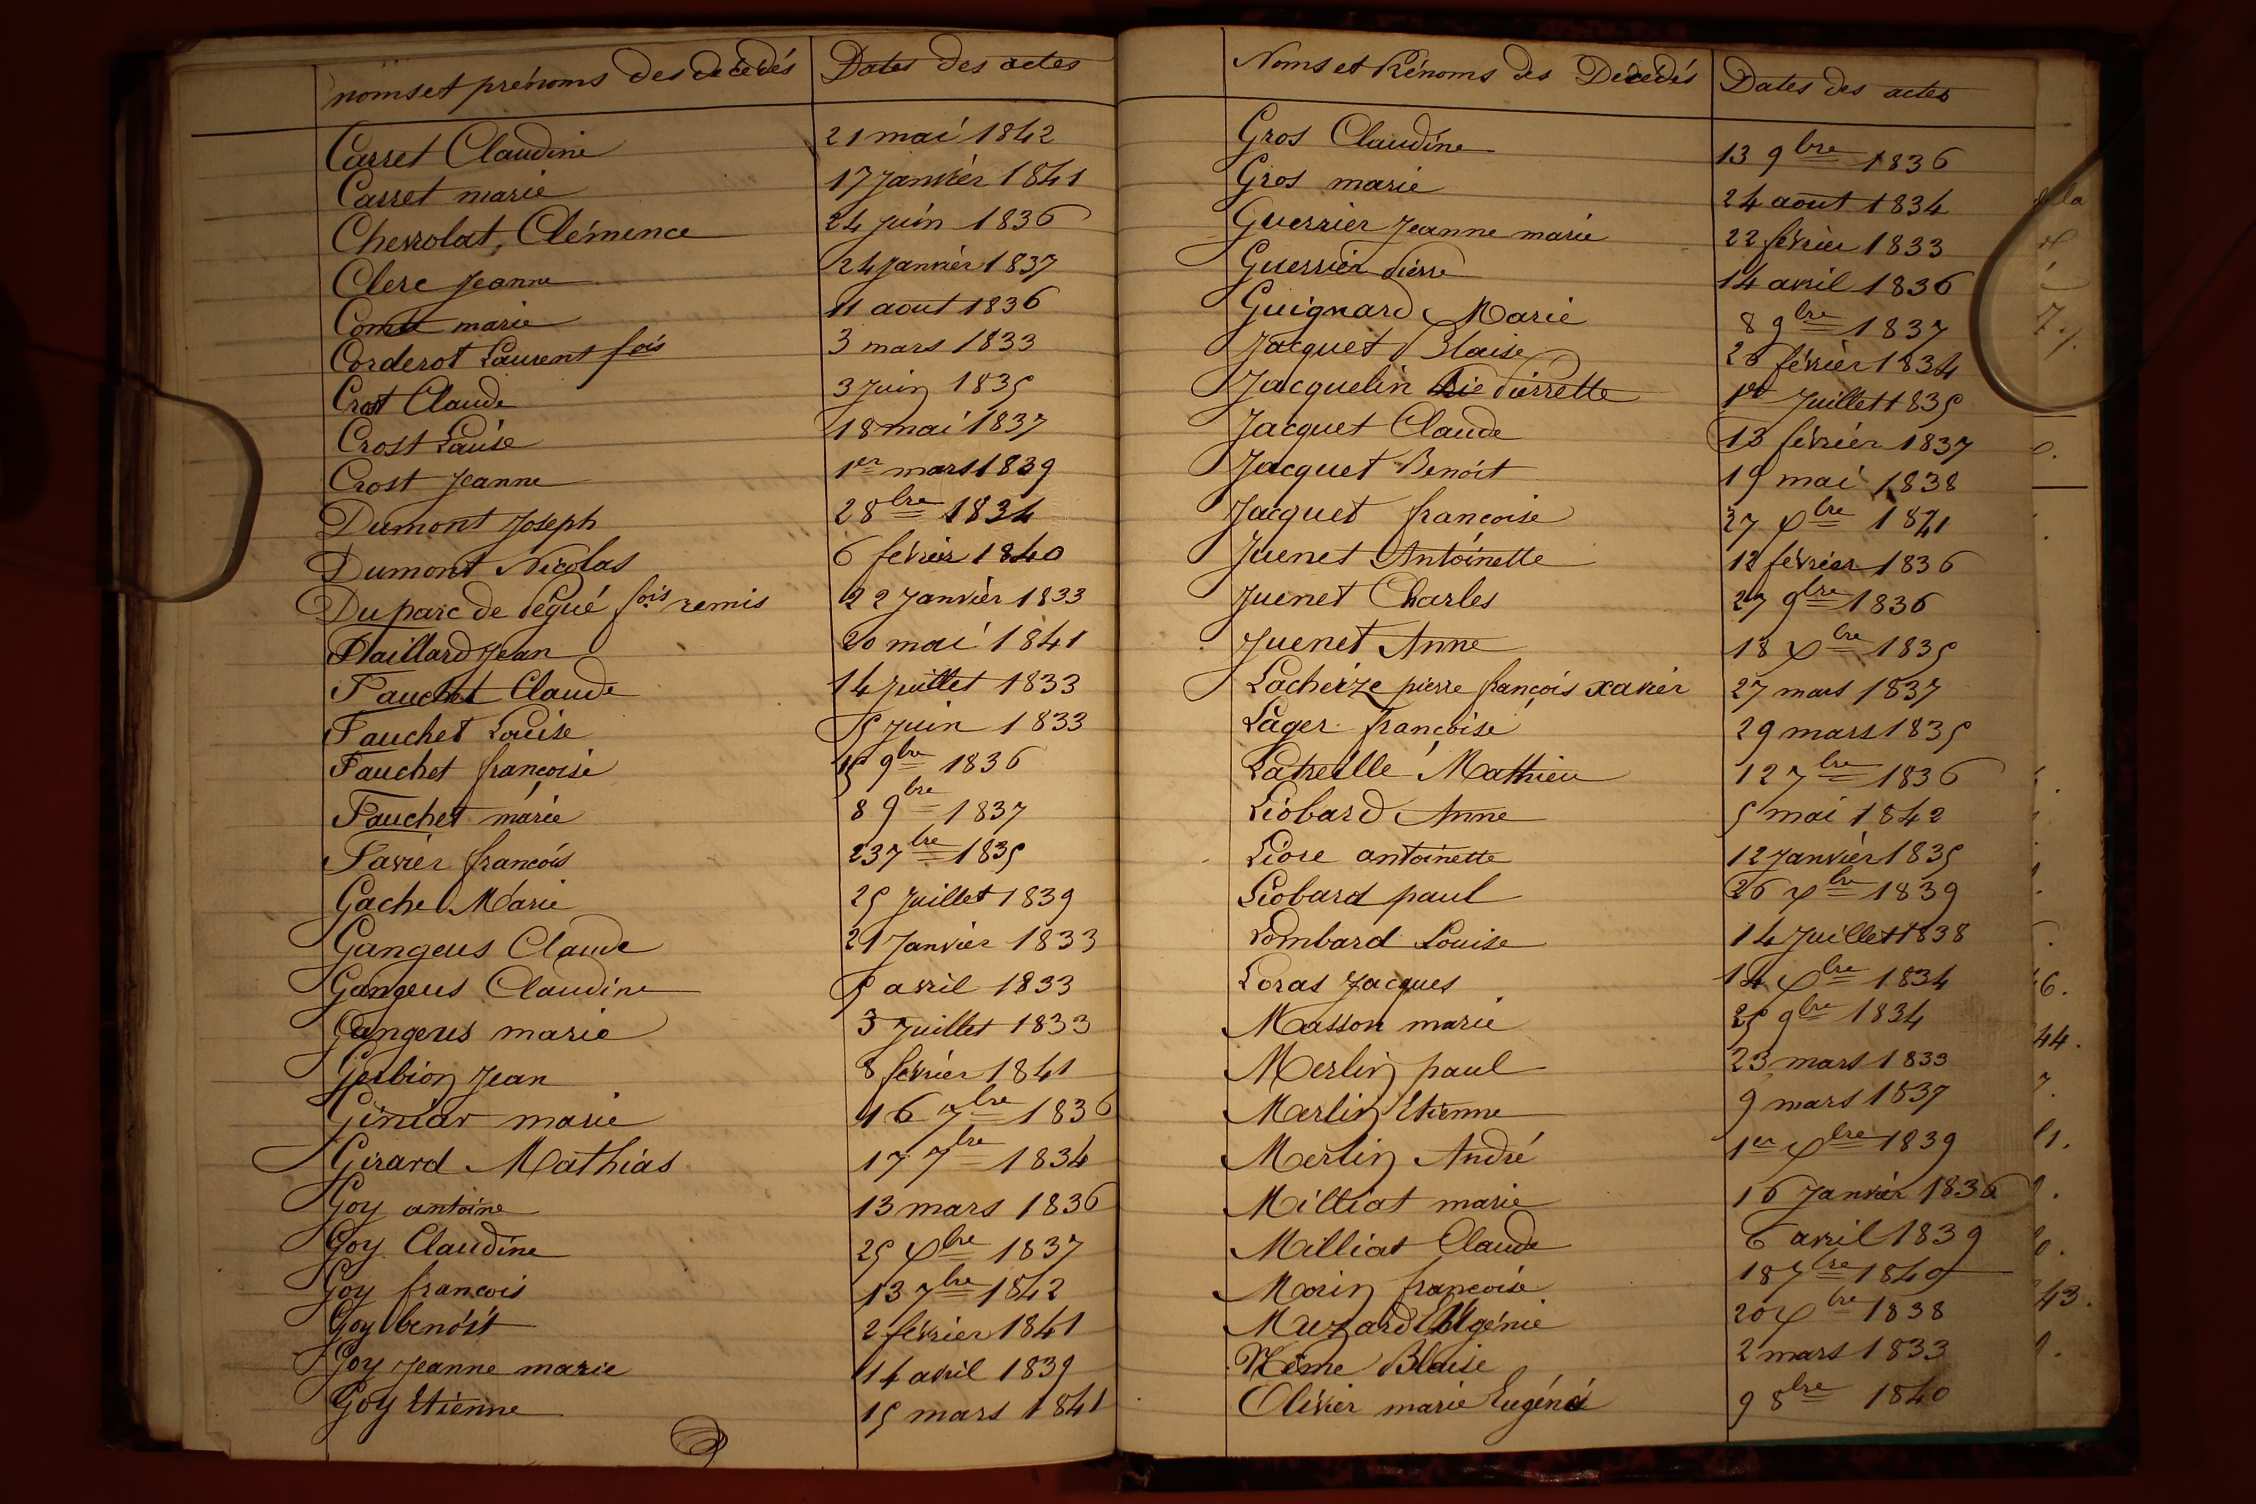 noms et prénoms des décédés Dates des actes
Carret Claudine 21 mai 1842
Carret marie 17 Janvier 1841
Chevrolat, Clémence 24 Juin 1836
Clerc Jeanne 24 Janvier 1837
Comte marie 11 aout 1836
Corderot Laurent fois 3 mars 1833
Crost Claude 3 Juin 1835
Crost Louise 18 mai 1837
Crost Jeanne 1er mars 1839
Dumont Joseph 2 8bre 1834
Dumont Nicolas 6 février 1840
Duparc de Pegué fois remis 22 Janvier 1833
Flaillard Jean 20 mai 1841
Fauchet Claude 14 Juillet 1833
Fauchet Louise 15 Juin 1833
Fauchet françoise 15 9bre 1836
Fauchet marie 8 9bre 1837
Favier françois 23 7bre 1835
Gache Marie 25 Juillet 1839
Gangeus Claude 21 Janvier 1833
Gangeus Claudine 5 avril 1833
Gangeus marie 3 Juillet 1833
Gerbion Jean 8 février 1841
Giniar marie 16 7bre 1836
Girard Mathias 17 7bre 1834
Goy antoine 13 mars 1836
Goy Claudine 25 Xbre 1837
Goy françois 13 7bre 1842
Goy benoît 2 février 1841
Goy Jeanne marie 14 avril 1839
Goy Etienne 15 mars 1841
Noms et Prénoms des Décédés Dates des actes
Gros Claudine 13 9bre 1836
Gros marie 24 aout 1834
Guerrier Jeanne marie 22 février 1833
Guerrier Pierre 14 avril 1836
Guignard Marie 8 9bre 1837
Jacquet Blaise 26 février 1834
Jacquelin Pierrette 1er Juillet 1835
Jacquet Claude 13 février 1837
Jacquet Benoit 19 mai 1838
Jacquet françoise 27 Xbre 1841
Juenet Antoinette 12 février 1836
Juenet Charles 27 9bre 1836
Juenet Anne 18 Xbre 1835
Lacheize pierre françois xavier 27 mars 1837
Lager françoise 29 mars 1835
Latreille Mathieu 12 7bre 1836
Liobard Anne 5 mai 1842
Liore antoinette 12 Janvier 1835
Liobard paul 26 Xbre 1839
Lombard Louise 14 Juillet 1838
Loras Jacques 14 Xbre 1834
Masson marie 25 9bre 1834
Merlin paul 23 mars 1833
Merlin Etienne 9 mars 1837
Merlin André 1er Xbre 1839
Milliat marie 16 Janvier 1836
Milliat Claude 6 avril 1839
Morin françoise 18 7bre 1840
Muzard Eugénie 20 Xbre 1838
Nême Blaise 2 mars 1833
Olivier marie Eugénie 9 8bre 1840